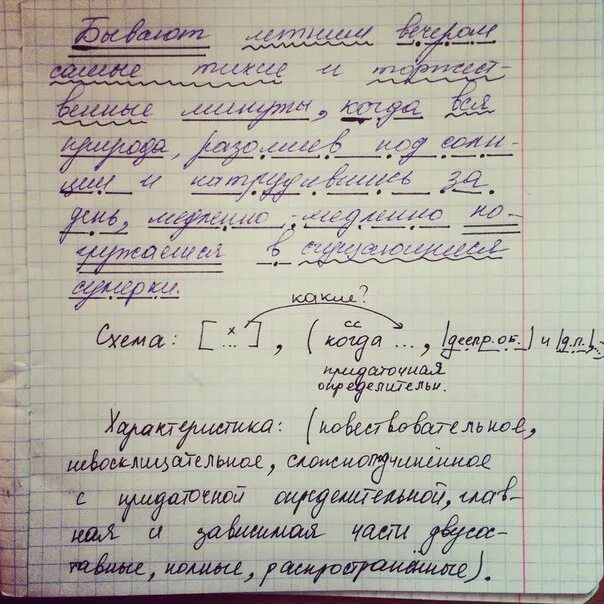 Бывают летним вечером
самые тихие и торжест-
венные минуты, когда вся
природа, разомлев под солн-
цем и натрудившись за
день, медленно-медленно по-
гружается в сгущающиеся
сумерки.
какие?
Схема: [ х ... ], ( сс когда ..., |деепр.об.| и |д.п.|, -)
придаточная
определительн.
Характеристика: (повествовательное,
невосклицательное, сложноподчинённое
с придаточной определительной, глав-
ная и зависимая части двусос-
тавные, полные, распространённые).